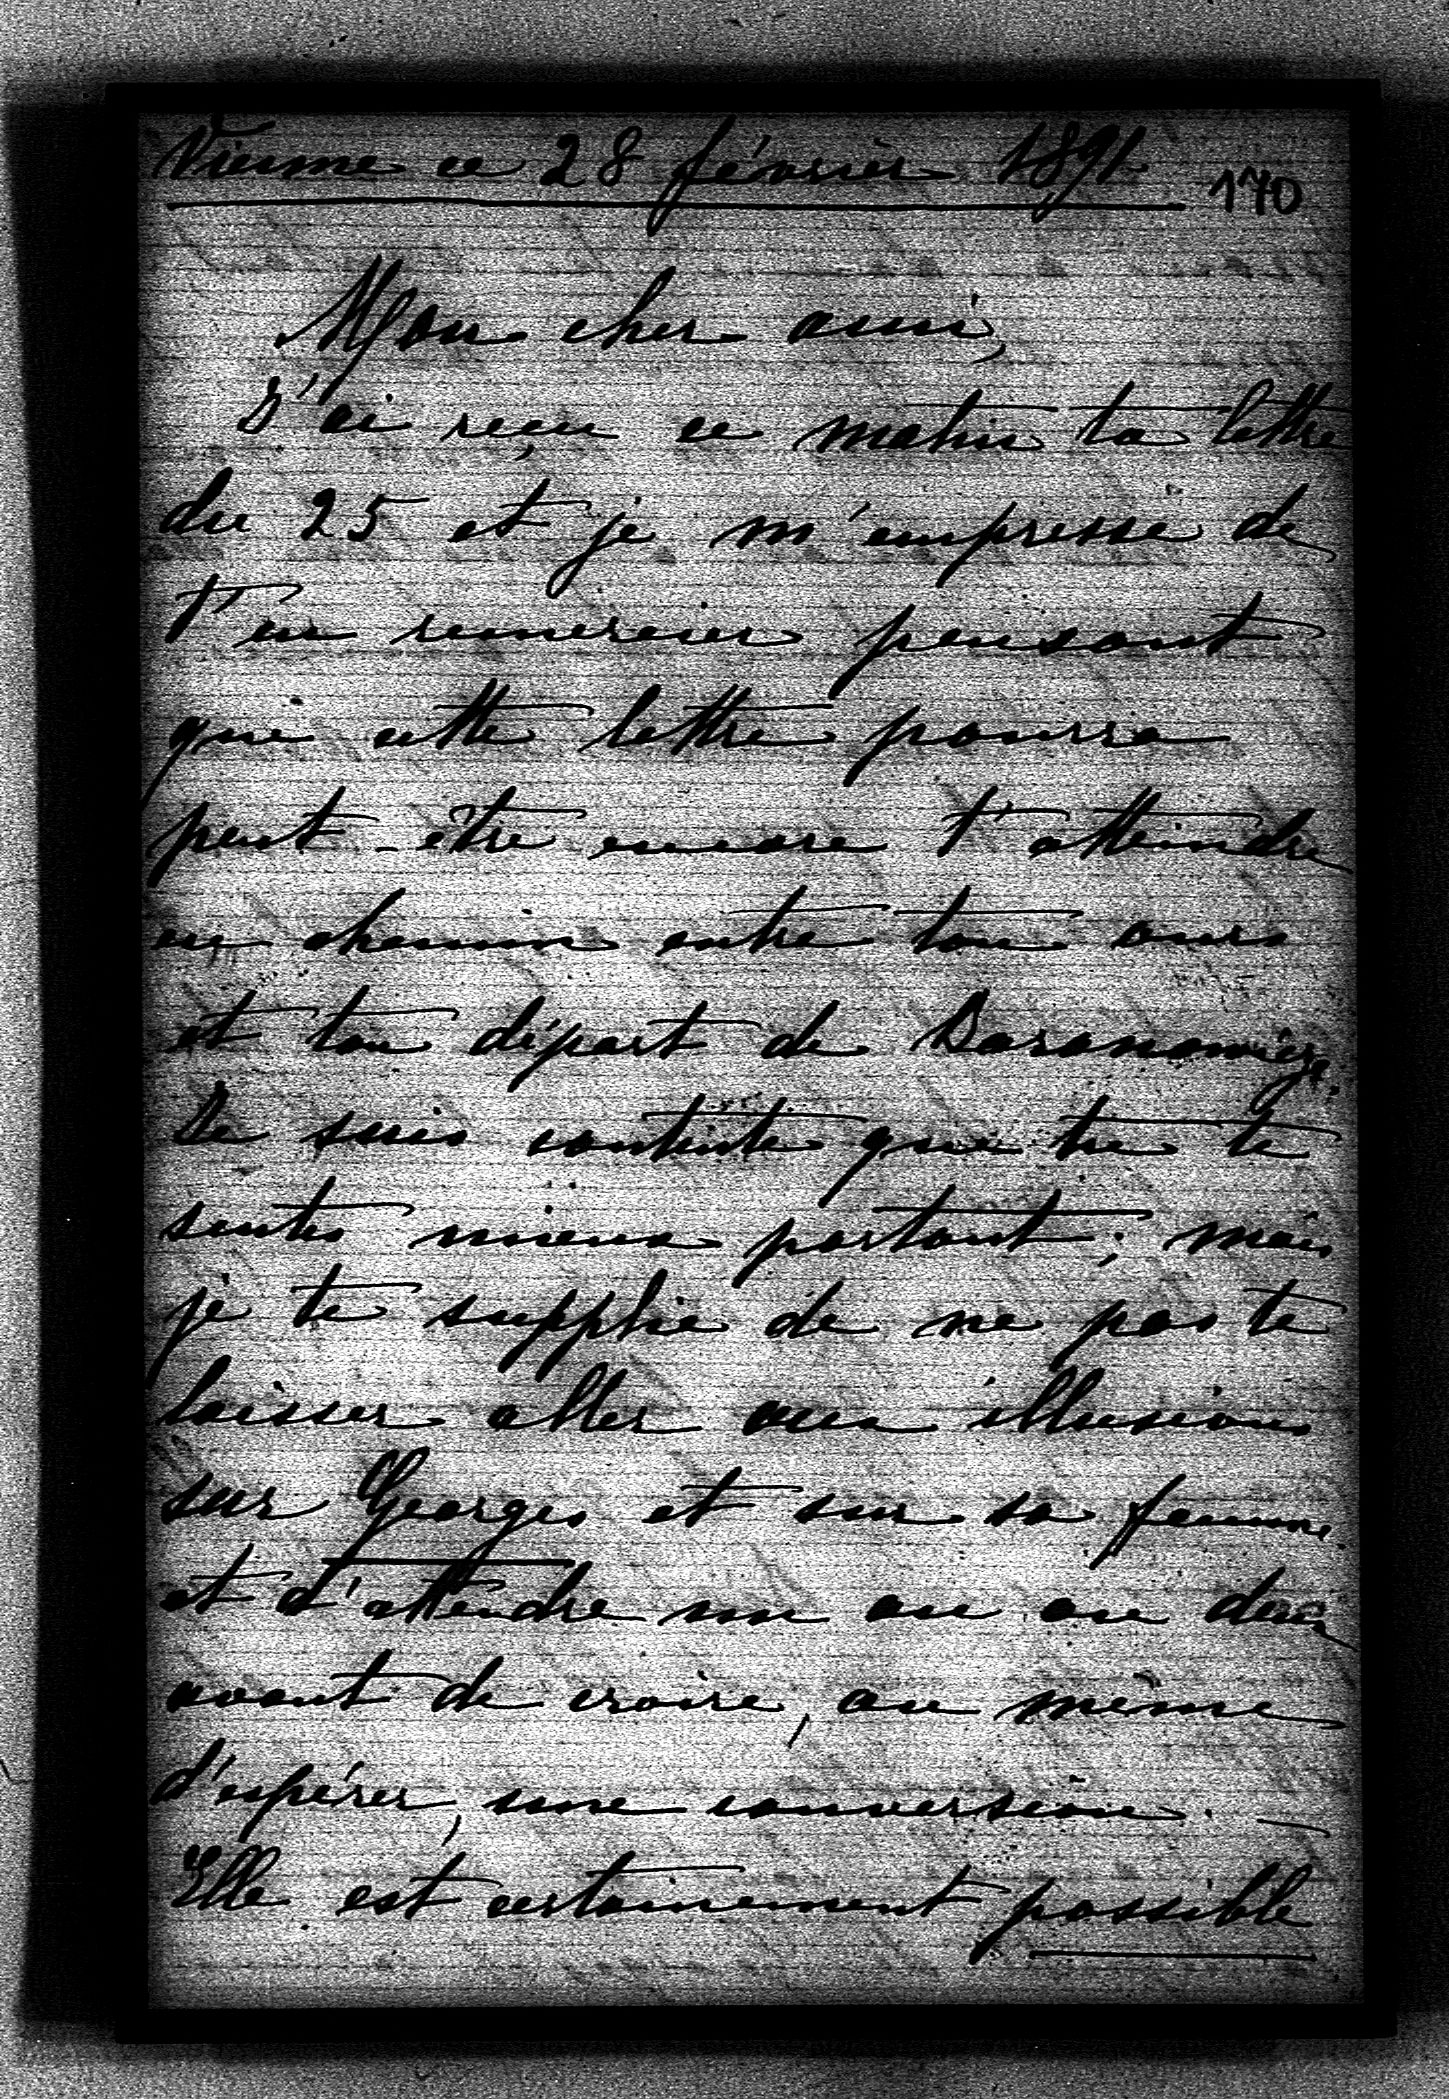 Vienne ce 28 février 1891
170
Mon cher ami,
J'ai reçu ce matin ta lettre
du 25 et je m'empresse de
t'en remercier pensant
que cette lettre pourra
peut-être encore t'atteindre
en chemin entre ton ours
et ton départ de Baranowicze.
Je suis contente que tu te
sentes mieux portant; mais
je te supplie de ne pas te
laisser aller aux illusions
sur Georges et sur sa femme
et d'attendre un an ou deux
avant de croire, ou même
d'espérer, une conversion. –
Elle est certainement possible